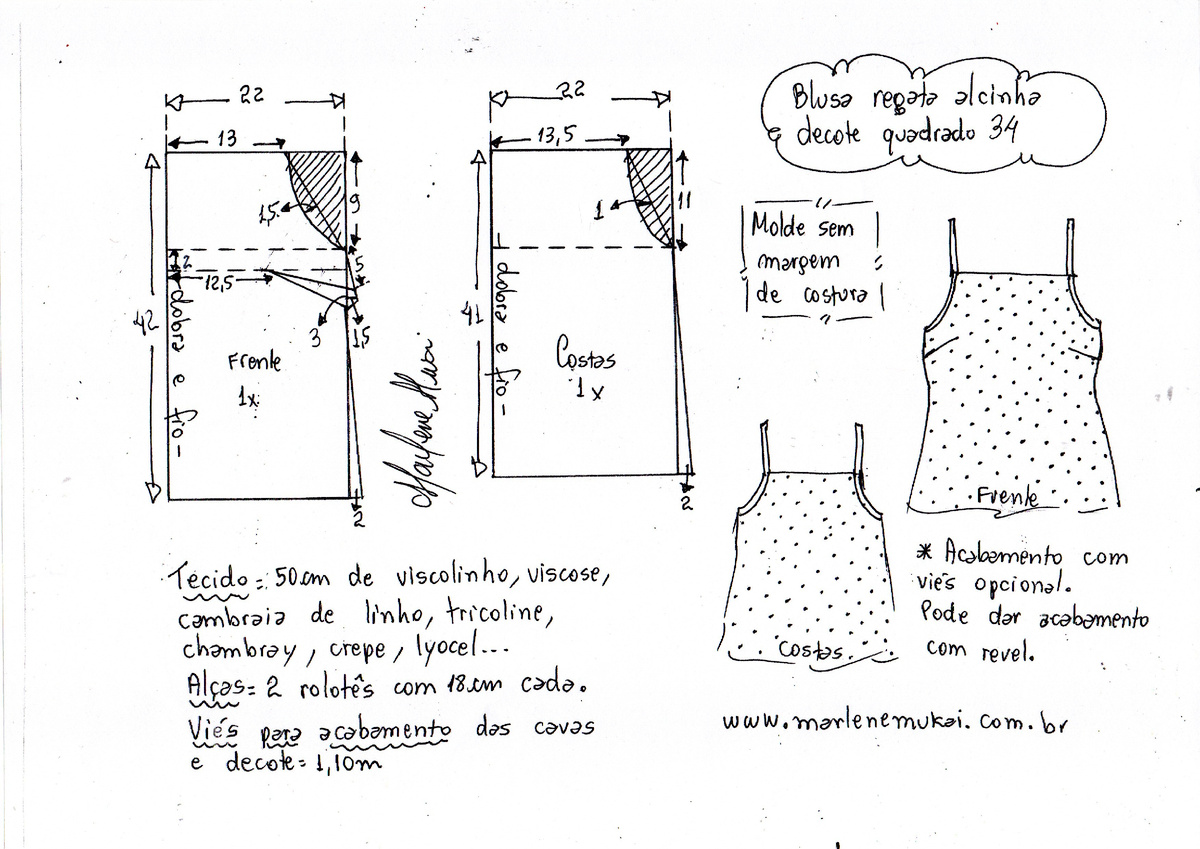 Blusa regata alcinha
e decote quadrado 34
22
13
9
1,5
2
12,5
5
3
1,5
42
dobra e fio
Frente
1x
2
22
13,5
11
1
41
dobra e fio
Costas
1x
2
Molde sem
margem
de costura
Frente
Costas
Tecido= 50cm de viscolinho, viscose,
cambraia de linho, tricoline,
chambray, crepe, lyocel...
Alças= 2 rolotês com 18cm cada.
Viés para acabamento das cavas
e decote= 1,10m
* Acabamento com
viés opcional.
Pode dar acabamento
com revel.
www.marlenemukai.com.br